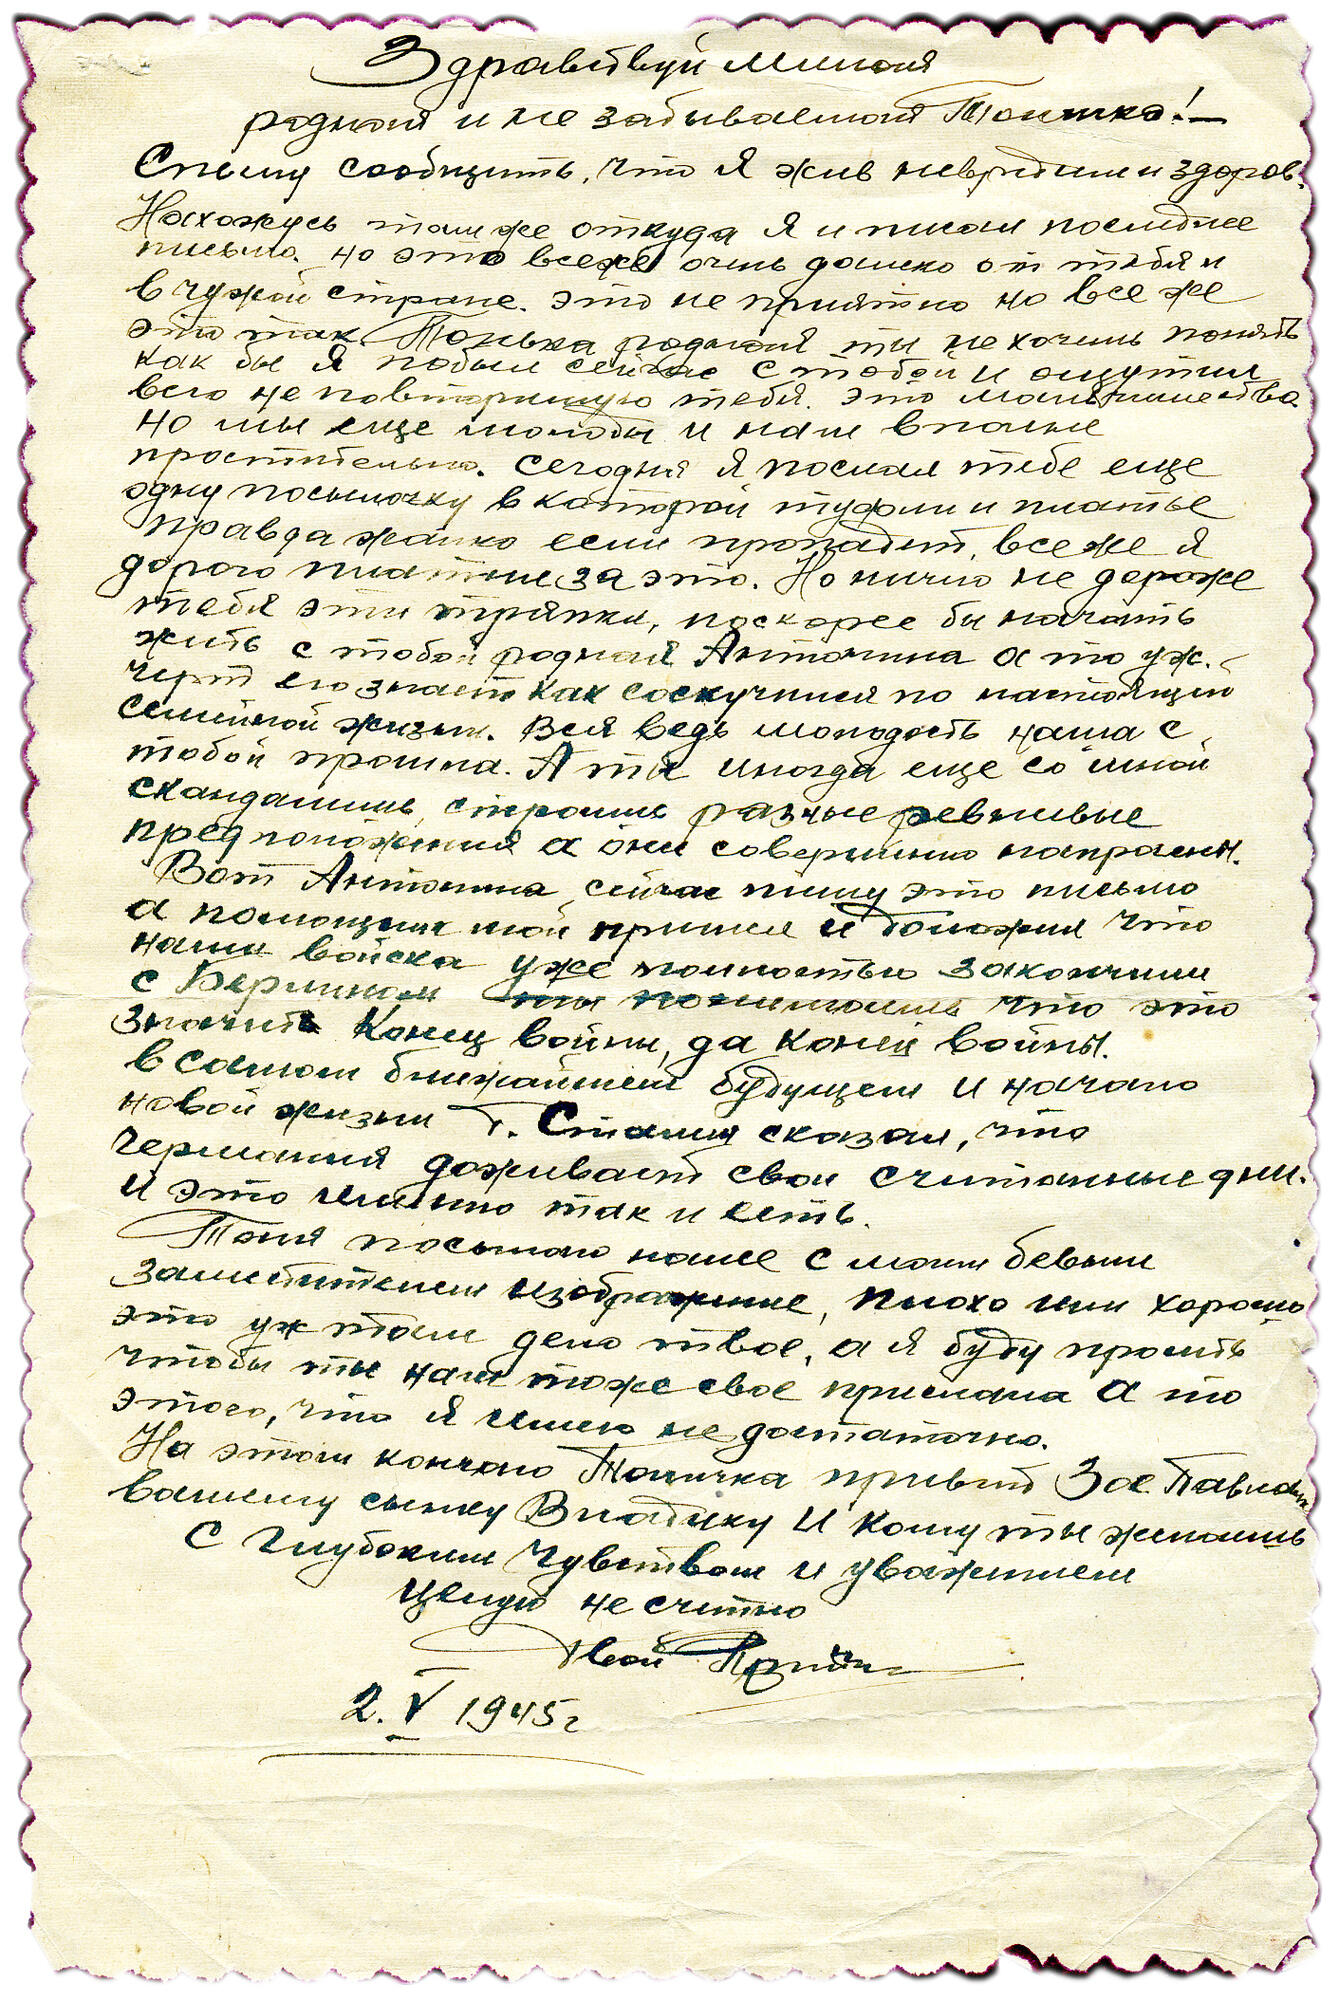 Здравствуй милая
родная и не забываемая Тоничка! —
Спешу сообщить, что я жив невридим и здоров.
Нахожусь там же откуда я и писал последнее
письмо. но это всеже очень далеко от тебя и
в чужой стране. это не приятно но все же
это так Тонька родная ты не хочешь понять
как бы я побыл сейчас с тобой и ощутил
всю неповторимую тебя. Это мальчишества
но мы еще молоды и нам вполне
простительно. Сегодня я послал тебе еще
одну посылочку в которой туфли и платье
правда жалко если пропадет, все же я
дорого платил за это. Но ничто не дороже
тебя эти тряпки, поскорее бы начать
жить с тобой родная Антонина а то уж.
черт его знает как соскучился по настоящей
семейной жизни. Вся ведь молодость наша с
тобой прошла. А ты иногда еще со мной
скандалишь, строишь разные ревнивые
предположения а они совершенно напрасны.
Вот Антонина сейчас пишу это письмо
а помощник мой пришел и доложил что
наши войска уже полностью закончили
с Берлином ты понимаешь что это
значит Конец войны, да конец войны.
в самом ближайшем будущем и начало
новой жизни Т. Сталин сказал, что
Германия доживает свои считанные дни.
и это именно так и есть.
Тоня посылаю наше с моим бевшим
заместителем изображение, плохо или хорошо
это уж там дело твое, а я буду просить
чтобы ты нам тоже свое прислала а то
этого, что я имею не достаточно.
На этом кончаю Тоничка привет Зое. Павловне
вашему сынку Владику и кому ты желаешь
С глубоким чувством и уважением
целую не счетно
Твой
2. V 1945 г